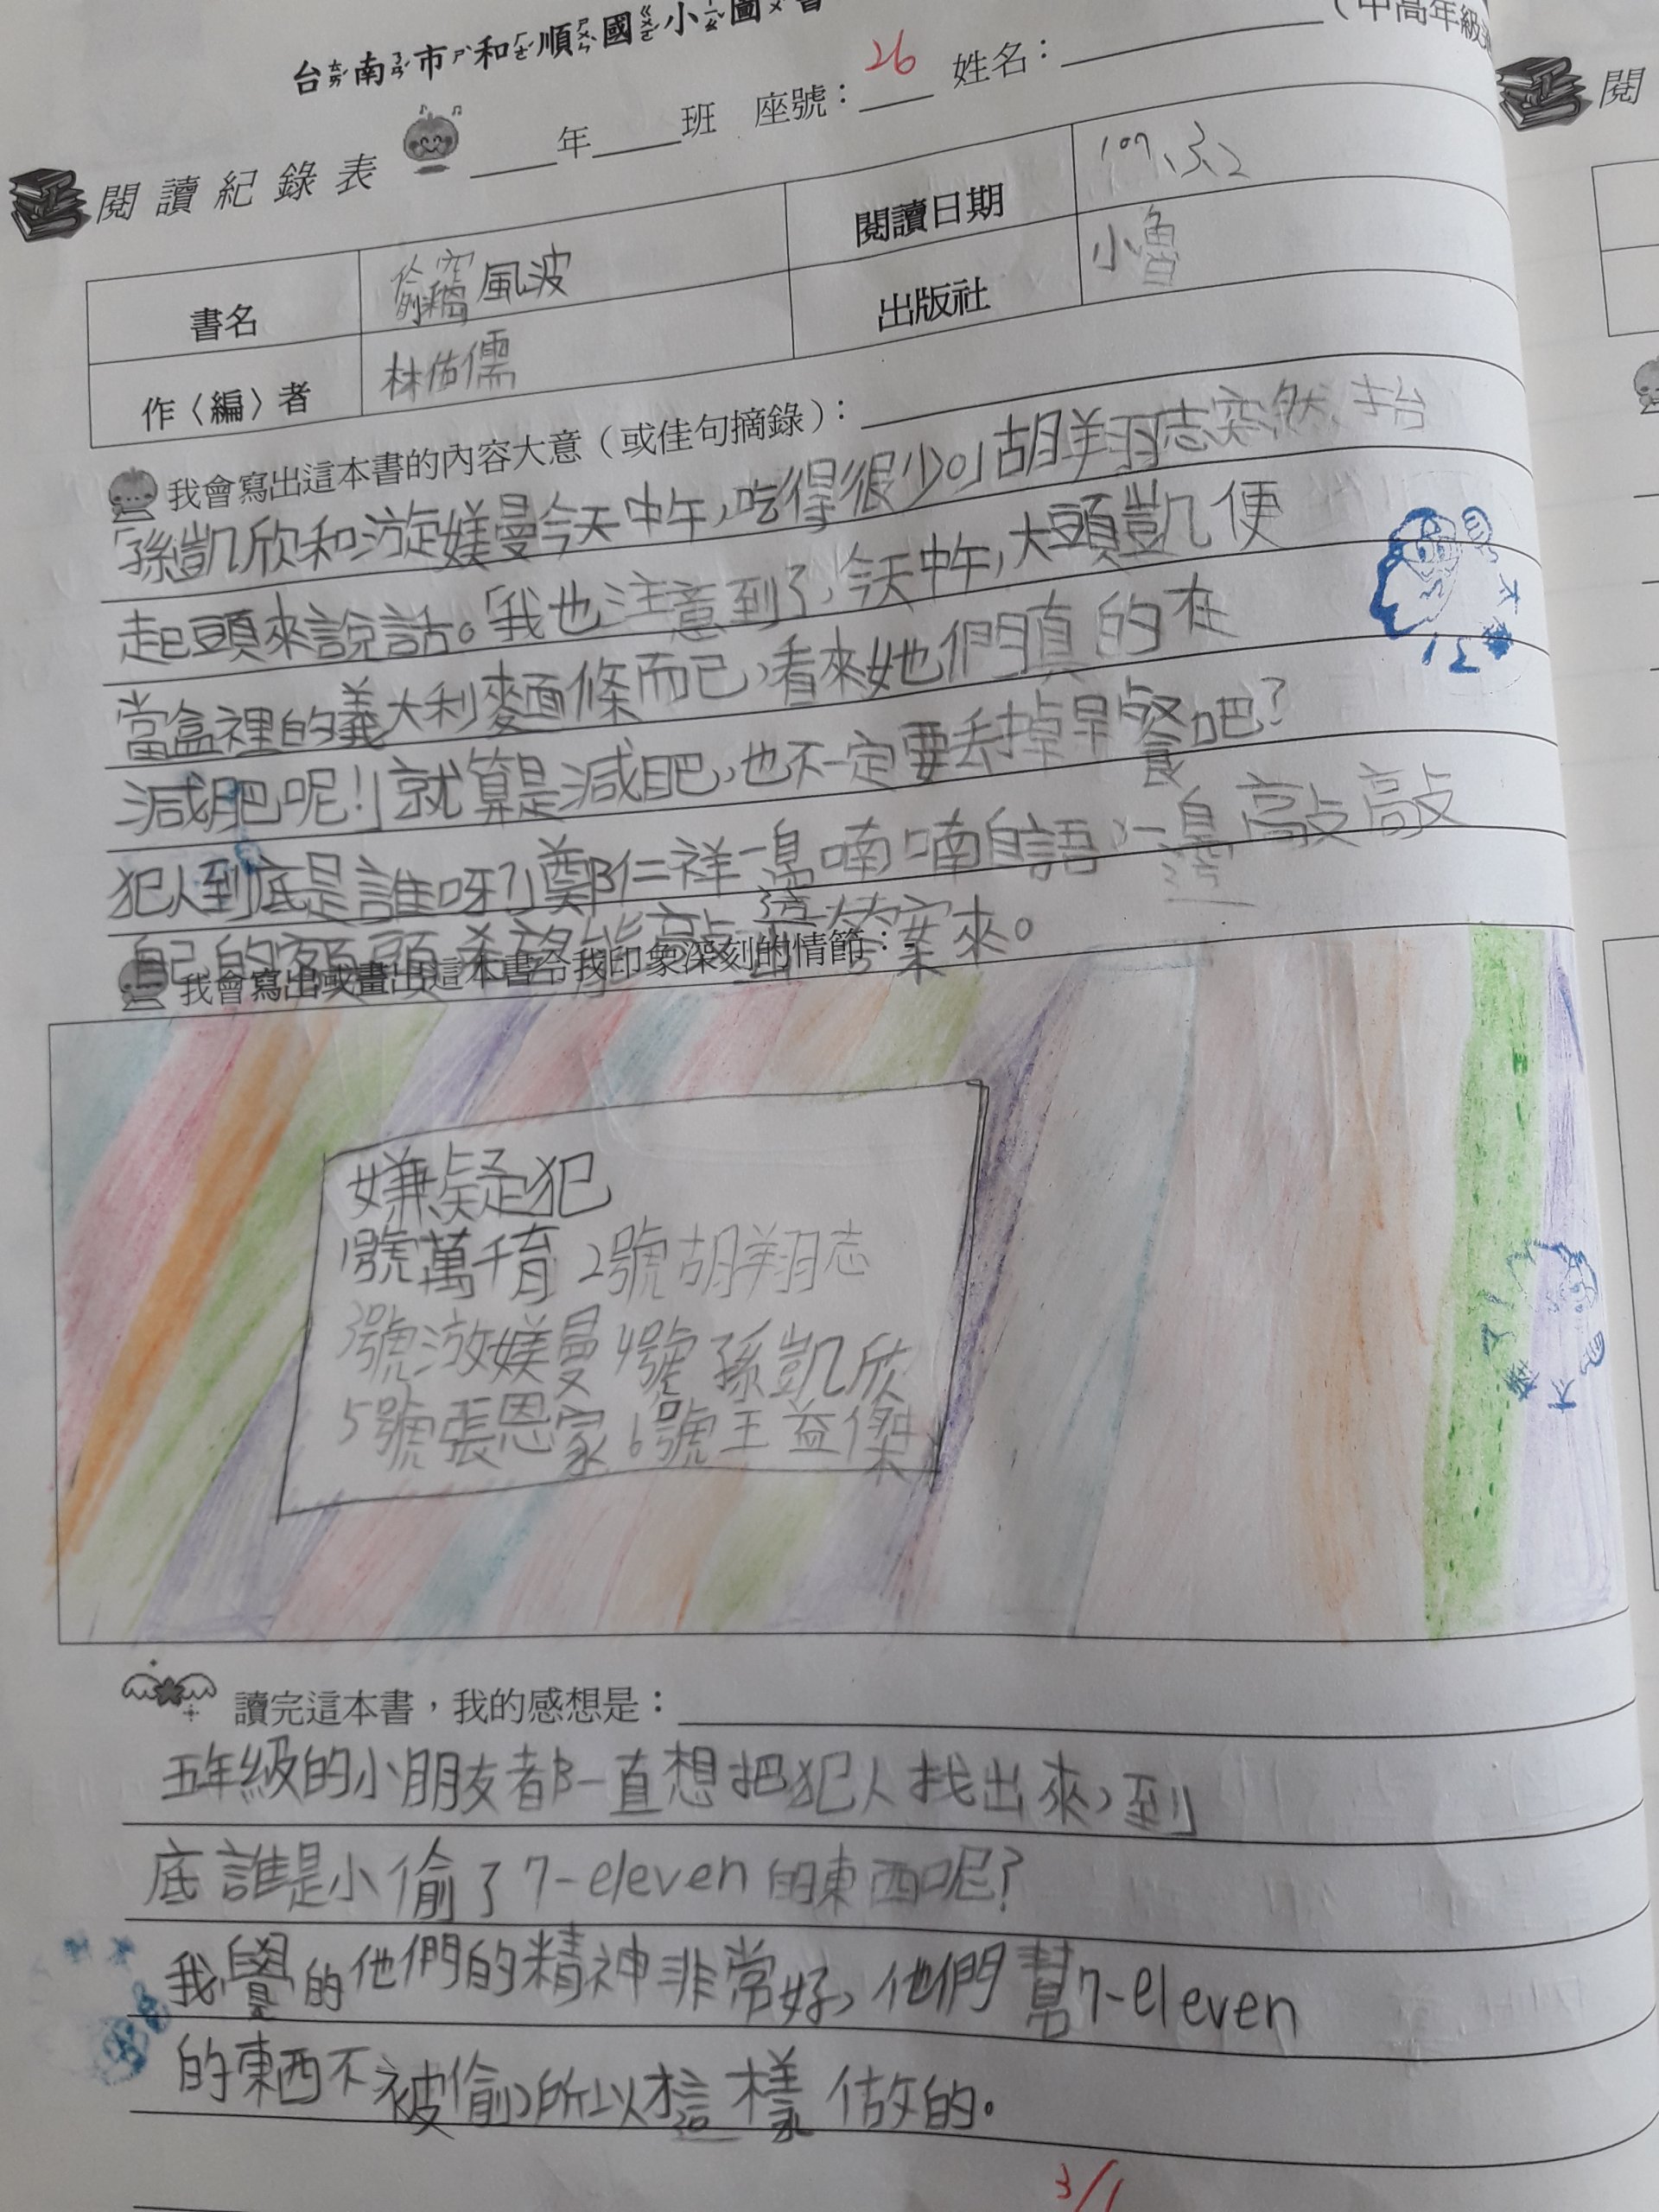 台南市和順國小圖書
(中高年級
閱讀紀錄表 ___年___班 座號：26 姓名：
閱
書名 偷竊風波 閱讀日期 107、3、2
作〈編〉者 林佑儒 出版社 小魯
我會寫出這本書的內容大意（或佳句摘錄）：
「孫凱欣和游媄曼今天中午，吃得很少。」胡翔志突然抬
起頭來說話。「我也注意到了，今天中午，大頭凱便
當盒裡的義大利麵條而已，看來她們真的在
減肥呢！」就算是減肥，也不一定要丟掉早餐吧？
犯人到底是誰呀？」鄭仁祥一邊喃喃自語，一邊敲敲
自己的額頭希望能敲出答案來。
我會寫出或畫出這本書令我印象深刻的情節：
嫌疑犯
1號萬千育 2號胡翔志
3號游媄曼 4號孫凱欣
5號張恩家 6號王益傑
讀完這本書，我的感想是：
五年級的小朋友都一直想把犯人找出來，到
底誰是小偷了7-eleven的東西呢？
我覺的他們的精神非常好，他們幫7-eleven
的東西不被偷，所以才這樣做的。
3/1
太棒了！